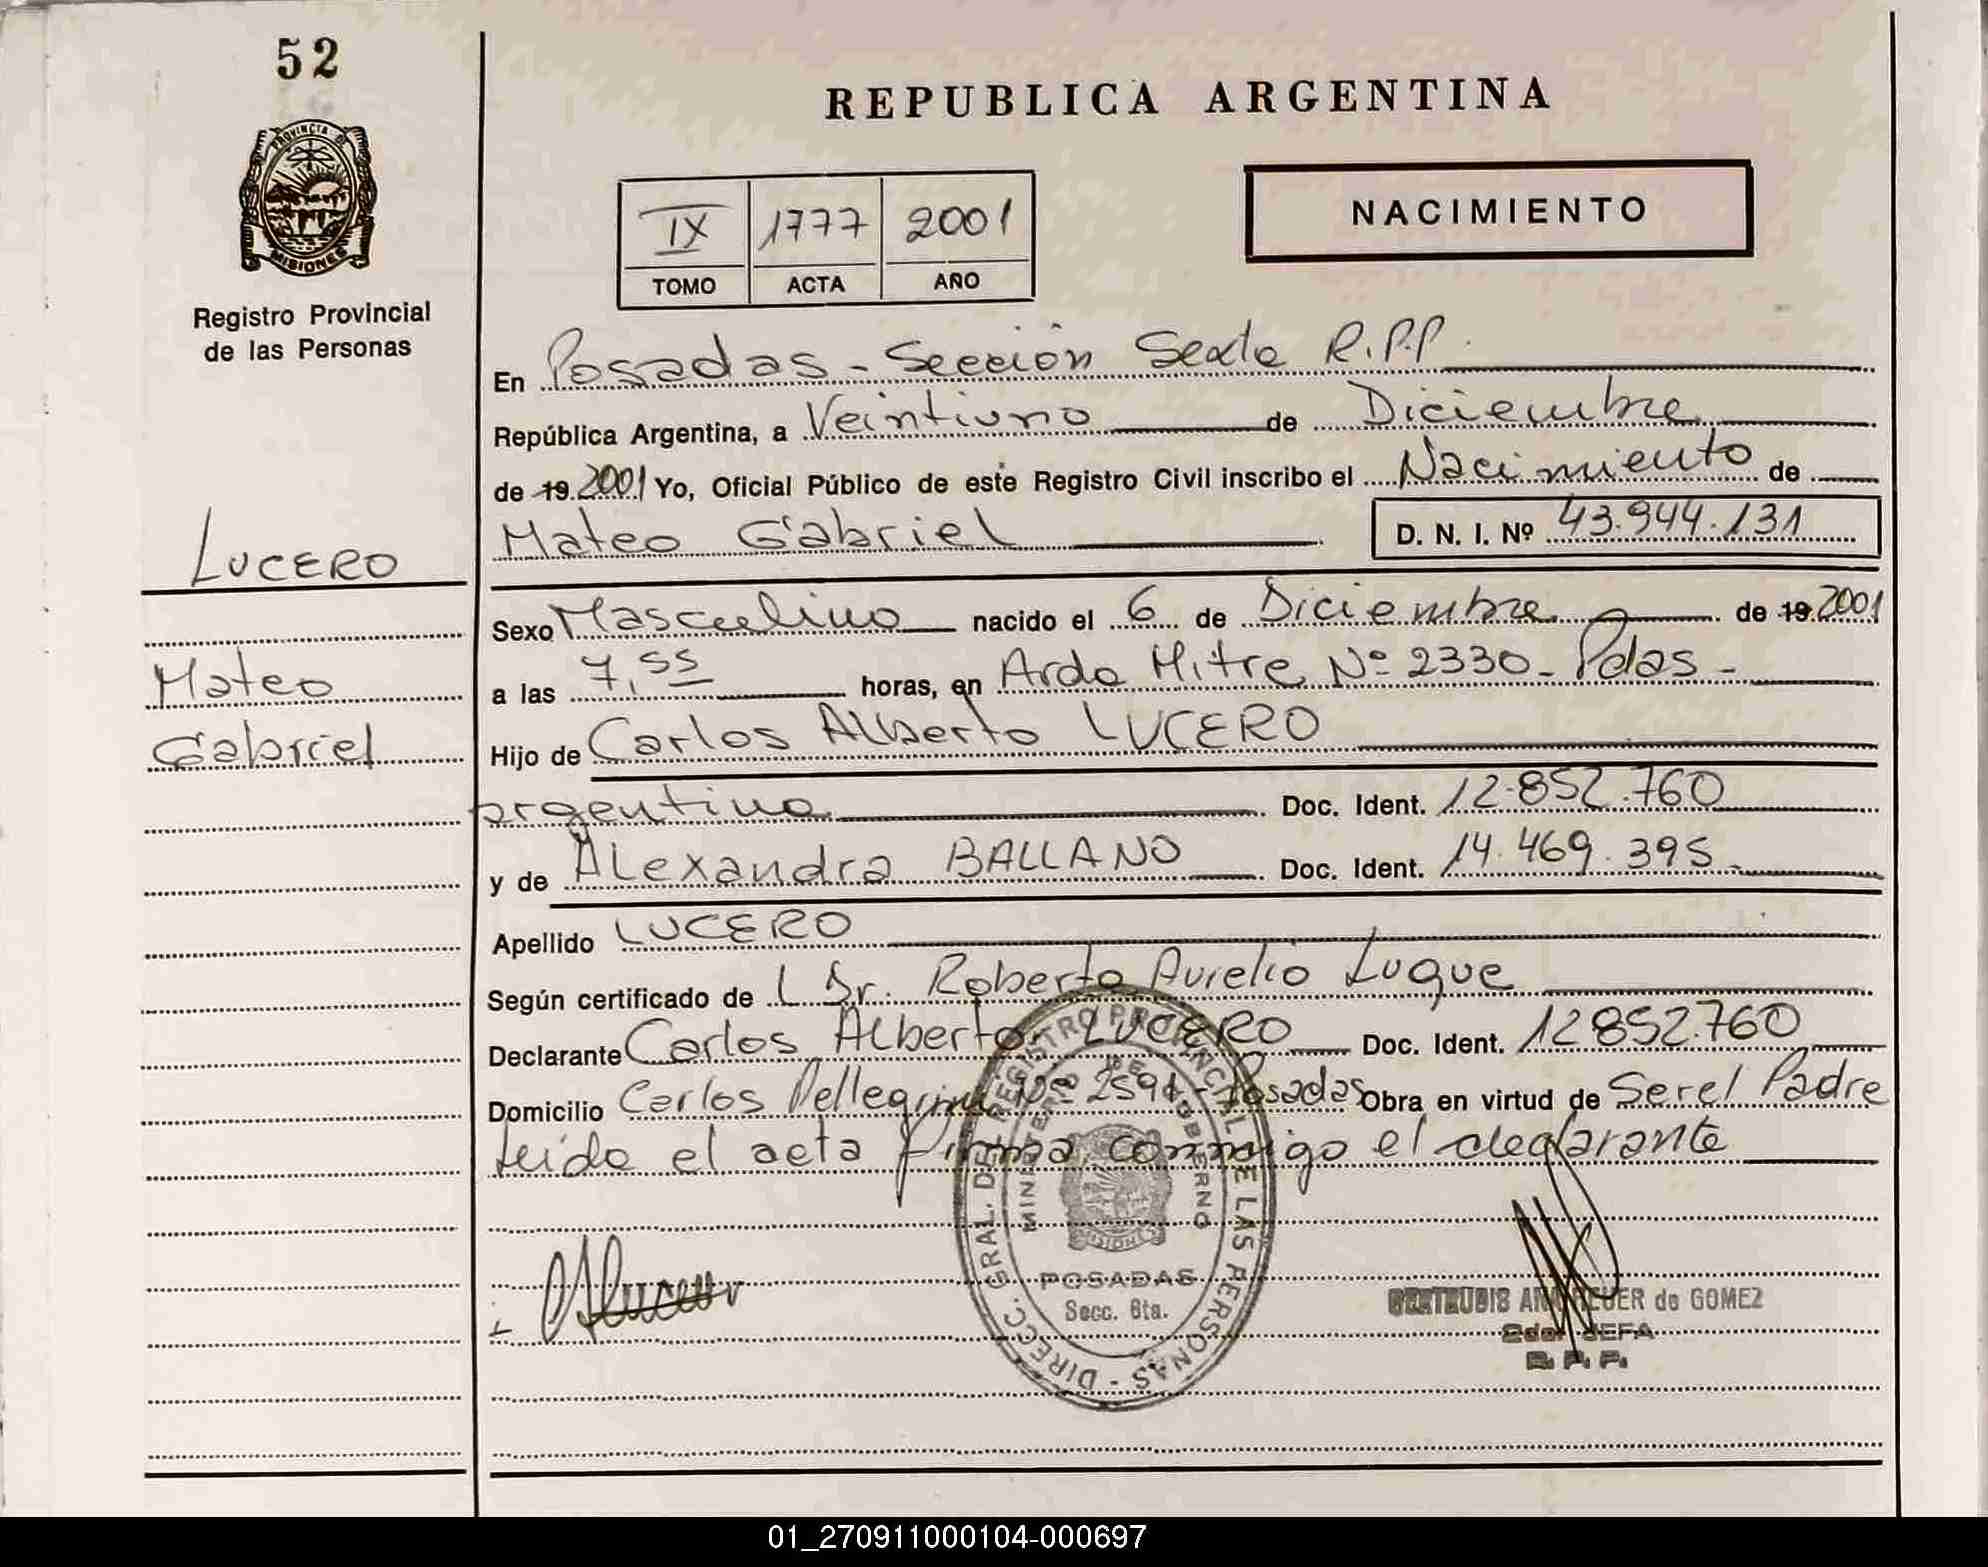 52
PROVINCIA DE
MISIONES
Registro Provincial
de las Personas
LUCERO
Mateo
Gabriel
REPUBLICA ARGENTINA
IX 1777 2001
TOMO ACTA AÑO
NACIMIENTO
En Posadas - Sección Sexta R.P.P.
República Argentina, a Veintiuno de Diciembre
de 19 2001 Yo, Oficial Público de este Registro Civil inscribo el Nacimiento de
Mateo Gabriel D. N. I. Nº 43.944.131
Sexo Masculino nacido el 6 de Diciembre de 19 2001
a las 7,55 horas, en Avda Mitre Nº 2330 - Pdas -
Hijo de Carlos Alberto LUCERO
argentino Doc. Ident. 12.852.760
y de Alexandra BALLANO Doc. Ident. 14.469.395
Apellido LUCERO
Según certificado de l Dr. Roberto Aurelio Luque
Declarante Carlos Alberto LUCERO Doc. Ident. 12852.760
Domicilio Carlos Pellegrini Nº 2591 - Posadas Obra en virtud de Ser el Padre
Leido el acta firma conmigo el declarante
DIRECC. GRAL. DEL REGISTRO PROVINCIAL DE LAS PERSONAS
MINISTERIO DE GOBIERNO
MISIONES
POSADAS
Secc. 6ta.
Lucero
GERTRUDIS de GOMEZ
2da. JEFA
R. P. P.
01_270911000104-000697